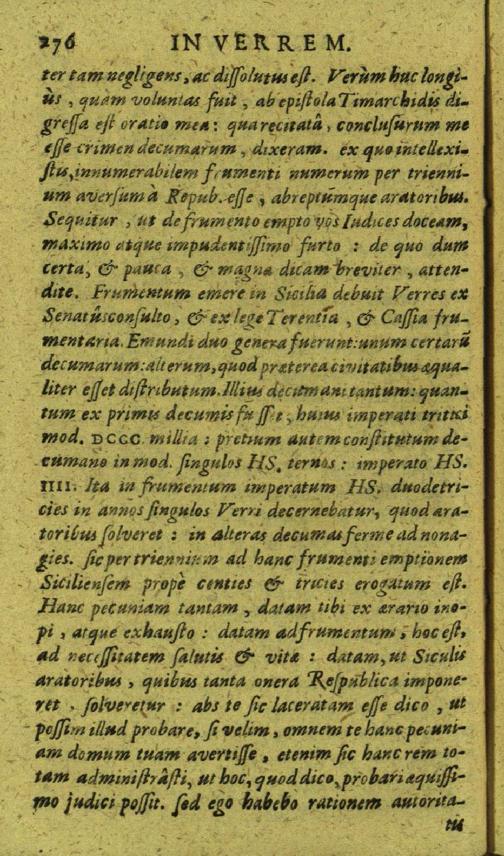 276 IN VERREM.
ter tam negligens, ac dissolutus est. Verùm huc longi-
ùs, quam voluntas fuit, ab epistola Timarchidis di-
gressa est oratio mea: qua recitatâ, conclusurum me
esse crimen decumarum, dixeram. ex quo intellexi-
stis, innumerabilem frumenti numerum per trienni-
um aversum à Repub. esse, abreptúmque aratoribus.
Sequitur, ut de frumento empto vos Iudices doceam,
maximo atque impudentissimo furto: de quo dum
certa, & pauca, & magna dicam breviter, atten-
dite. Frumentum emere in Sicilia debuit Verres ex
Senatûsconsulto, & ex lege Terentia, & Cassia fru-
mentaria. Emundi duo genera fuerunt: unum certarũ
decumarum: alterum, quod præterea civitatibus æqua-
liter esset distributum. Illius decumani tantum: quan-
tum ex primis decumis fuisset, huius imperati tritici
mod. DCCC. millia: pretium autem constitutum de-
cumano in mod. singulos HS. ternos: imperato HS.
IIII. Ita in frumentum imperatum HS. duodetri-
cies in annos singulos Verri decernebatur, quod ara-
toribus solveret: in alteras decumas ferme ad nona-
gies. sic per triennium ad hanc frumenti emptionem
Siciliensem propè centies & tricies erogatum est.
Hanc pecuniam tantam, datam tibi ex ærario ino-
pi, atque exhausto: datam ad frumentum, hoc est,
ad necessitatem salutis & vitæ: datam, ut Siculis
aratoribus, quibus tanta onera Respublica impone-
ret, solveretur: abs te sic laceratam esse dico, ut
possim illud probare, si velim, omnem te hanc pecuni-
am domum tuam avertisse, etenim sic hanc rem to-
tam administrâsti, ut hoc, quod dico, probari æquissi-
mo judici possit. sed ego habebo rationem autorita-
tis